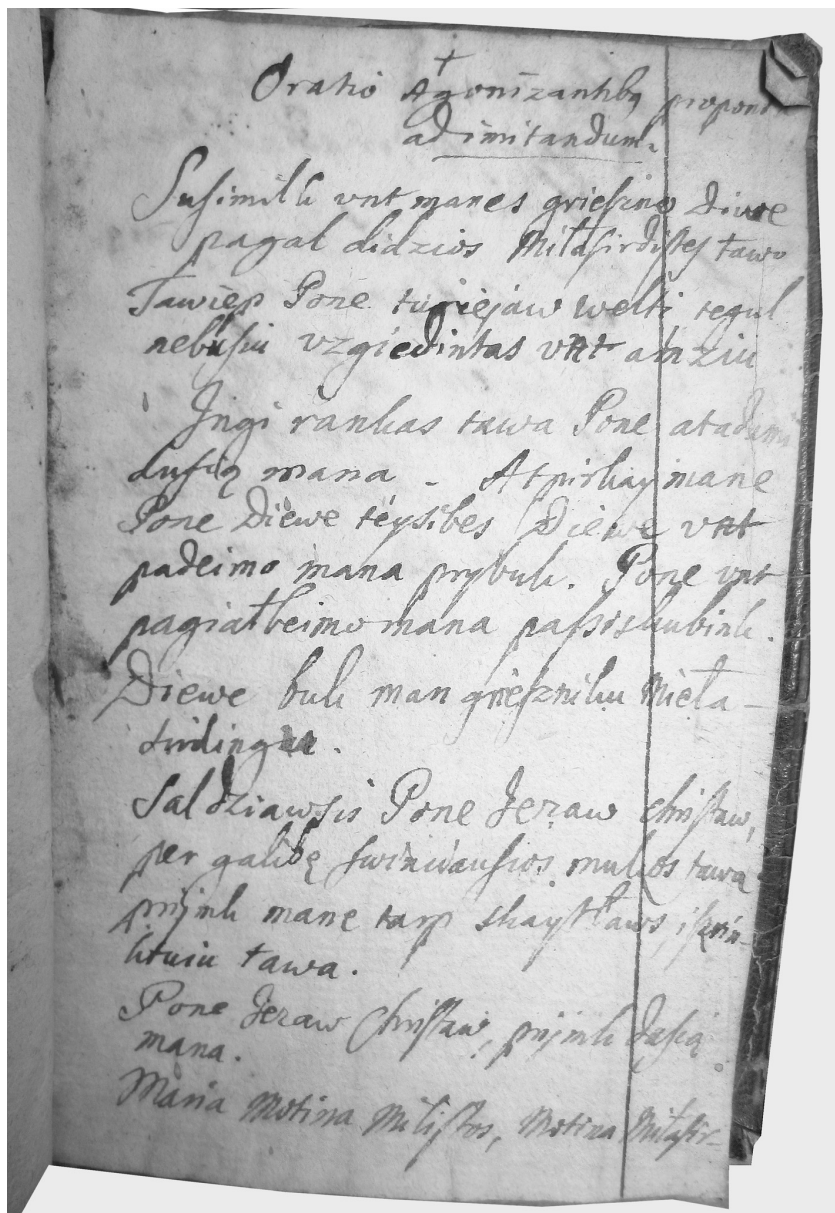 Oratio Agonizantibq propon
ad imitandum.
Susimilk vnt manes grieszno Diwe
pagal didzios Miłasirdistes tawo
Tawiep Pone turiejaw welti tegul
nebusiu vzgiedintas vnt amziu
Jngi rankas tawa Pone atadumi
dusią mana - Atpirkay mane
Pone Diewe teysibes Diewe vnt
padeimo mana prybuk. Pone vnt
pagiałbeimo mana pasiskubink.
Diewe buk man grieszniku Mieła-
sirdingas.
Saldziawsis Pone Jezaw Christaw,
per galibę swinciausios mukos tawa
pryimk mane tarp skaytlaws, iszrin-
ktuiu tawa.
Pone Jezaw Christaw, pryimk dusią
mana.
Maria Motina Milistos, Motina Miłasir-